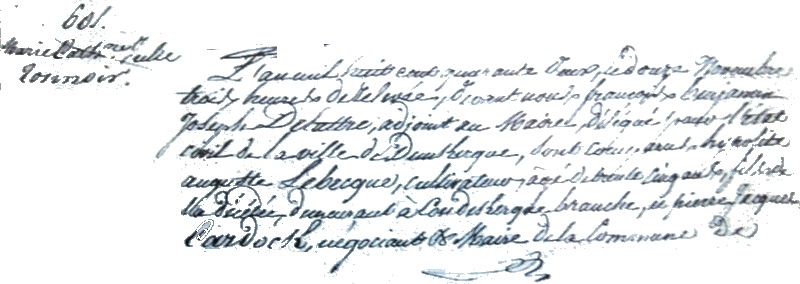 601.
Marie Cath.
Tonnoir.
L'an mil huit cent quarante deux, le douze Novembre
trois heures de relevée, devant nous françois benjamin
Joseph Delattre, adjoint au Maire délégué pour l'état
civil de la ville de Dunkerque, sont comparus hypolite
auguste Lebecque, cultivateur, âgé de trente cinq ans, fils de
la décédée, demeurant à Coudekerque branche, et pierre Jacques
Cardock, négociant & Maire de la Commune De